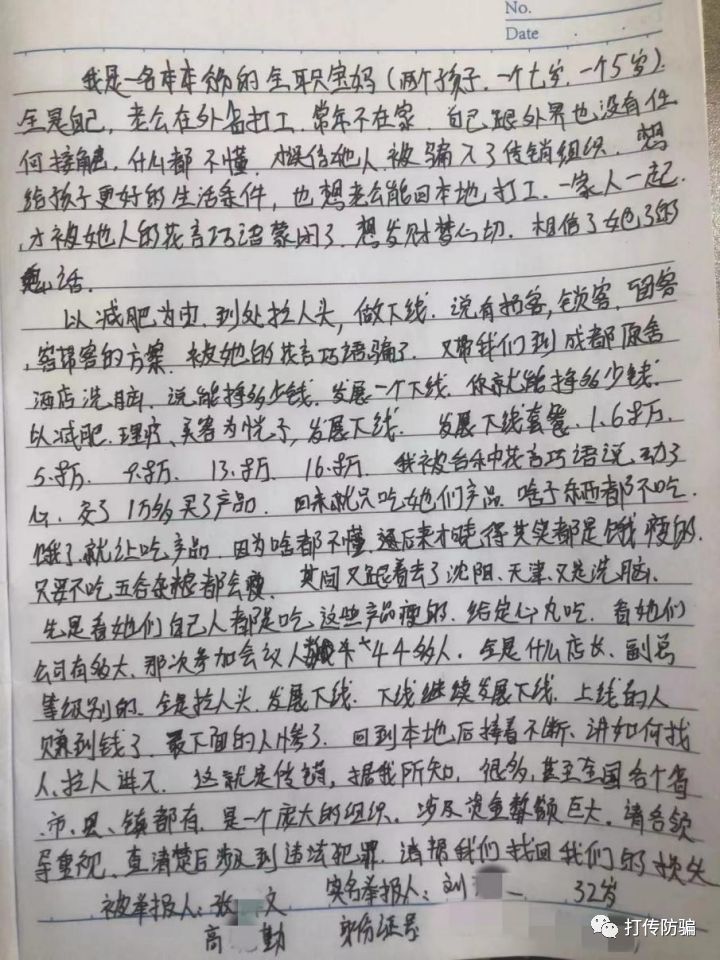 No.
Date
我是一名本本份份的全职宝妈（两个孩子.一个七岁.一个5岁）
全靠自己，老公在外省打工.常年不在家.自己跟外界也没有任
何接触，什么都不懂.误信她人.被骗入了传销组织.想
给孩子更好的生活条件，也想老公能回本地打工.一家人一起.
才被她人的花言巧语蒙闭了.想发财梦心切.相信了她了的
鬼话.
以减肥为由.到处拉人头，做下线.说有拓客，锁客，留客
，客帮客的方案.被她的花言巧语骗了.又带我们到成都原舍
酒店洗脑.说能挣多少钱.发展一个下线.你就能挣多少钱.
以减肥.理疗、美容为恍子，发展下线.发展下线套餐、1.6万.
5.8万. 9.8万. 13.8万. 16.8万. 我被各种花言巧语说动了
心.交了1万多买了产品.回来就只吃她们产品.啥子东西都不吃.
饿了就让吃产品.因为啥都不懂.通后来才晓得其实都是饿瘦的.
只要不吃五谷杂粮都会瘦.其间又跟着去了沈阳、天津.又是洗脑.
先是看她们自己人都是吃这些产品瘦的.给定心丸吃.看她们
公司有多大.那次参加会议人 4千多人.全是什么店长、副总
等级别的.全是拉人头.发展下线.下线继续发展下线.上线的人
赚到钱了.最下面的人惨了.回到本地后接着不断、讲如何找
人、拉人进入.这就是传销，据我所知，很多，甚至全国各个省
.市、县、镇都有.是一个庞大的组织.涉及资金数额巨大.请各领
导重视.查清楚后涉及到违法犯罪.请帮我们找回我们的损失
被举报人：张 文 实名举报人：刘 32岁
高 勤 身份证号
打传防骗